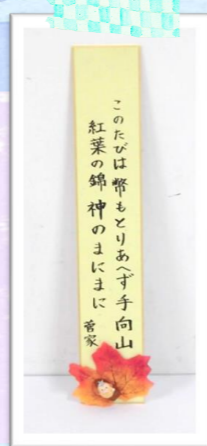 このたびは幣もとりあへず手向山
紅葉の錦神のまにまに
菅家